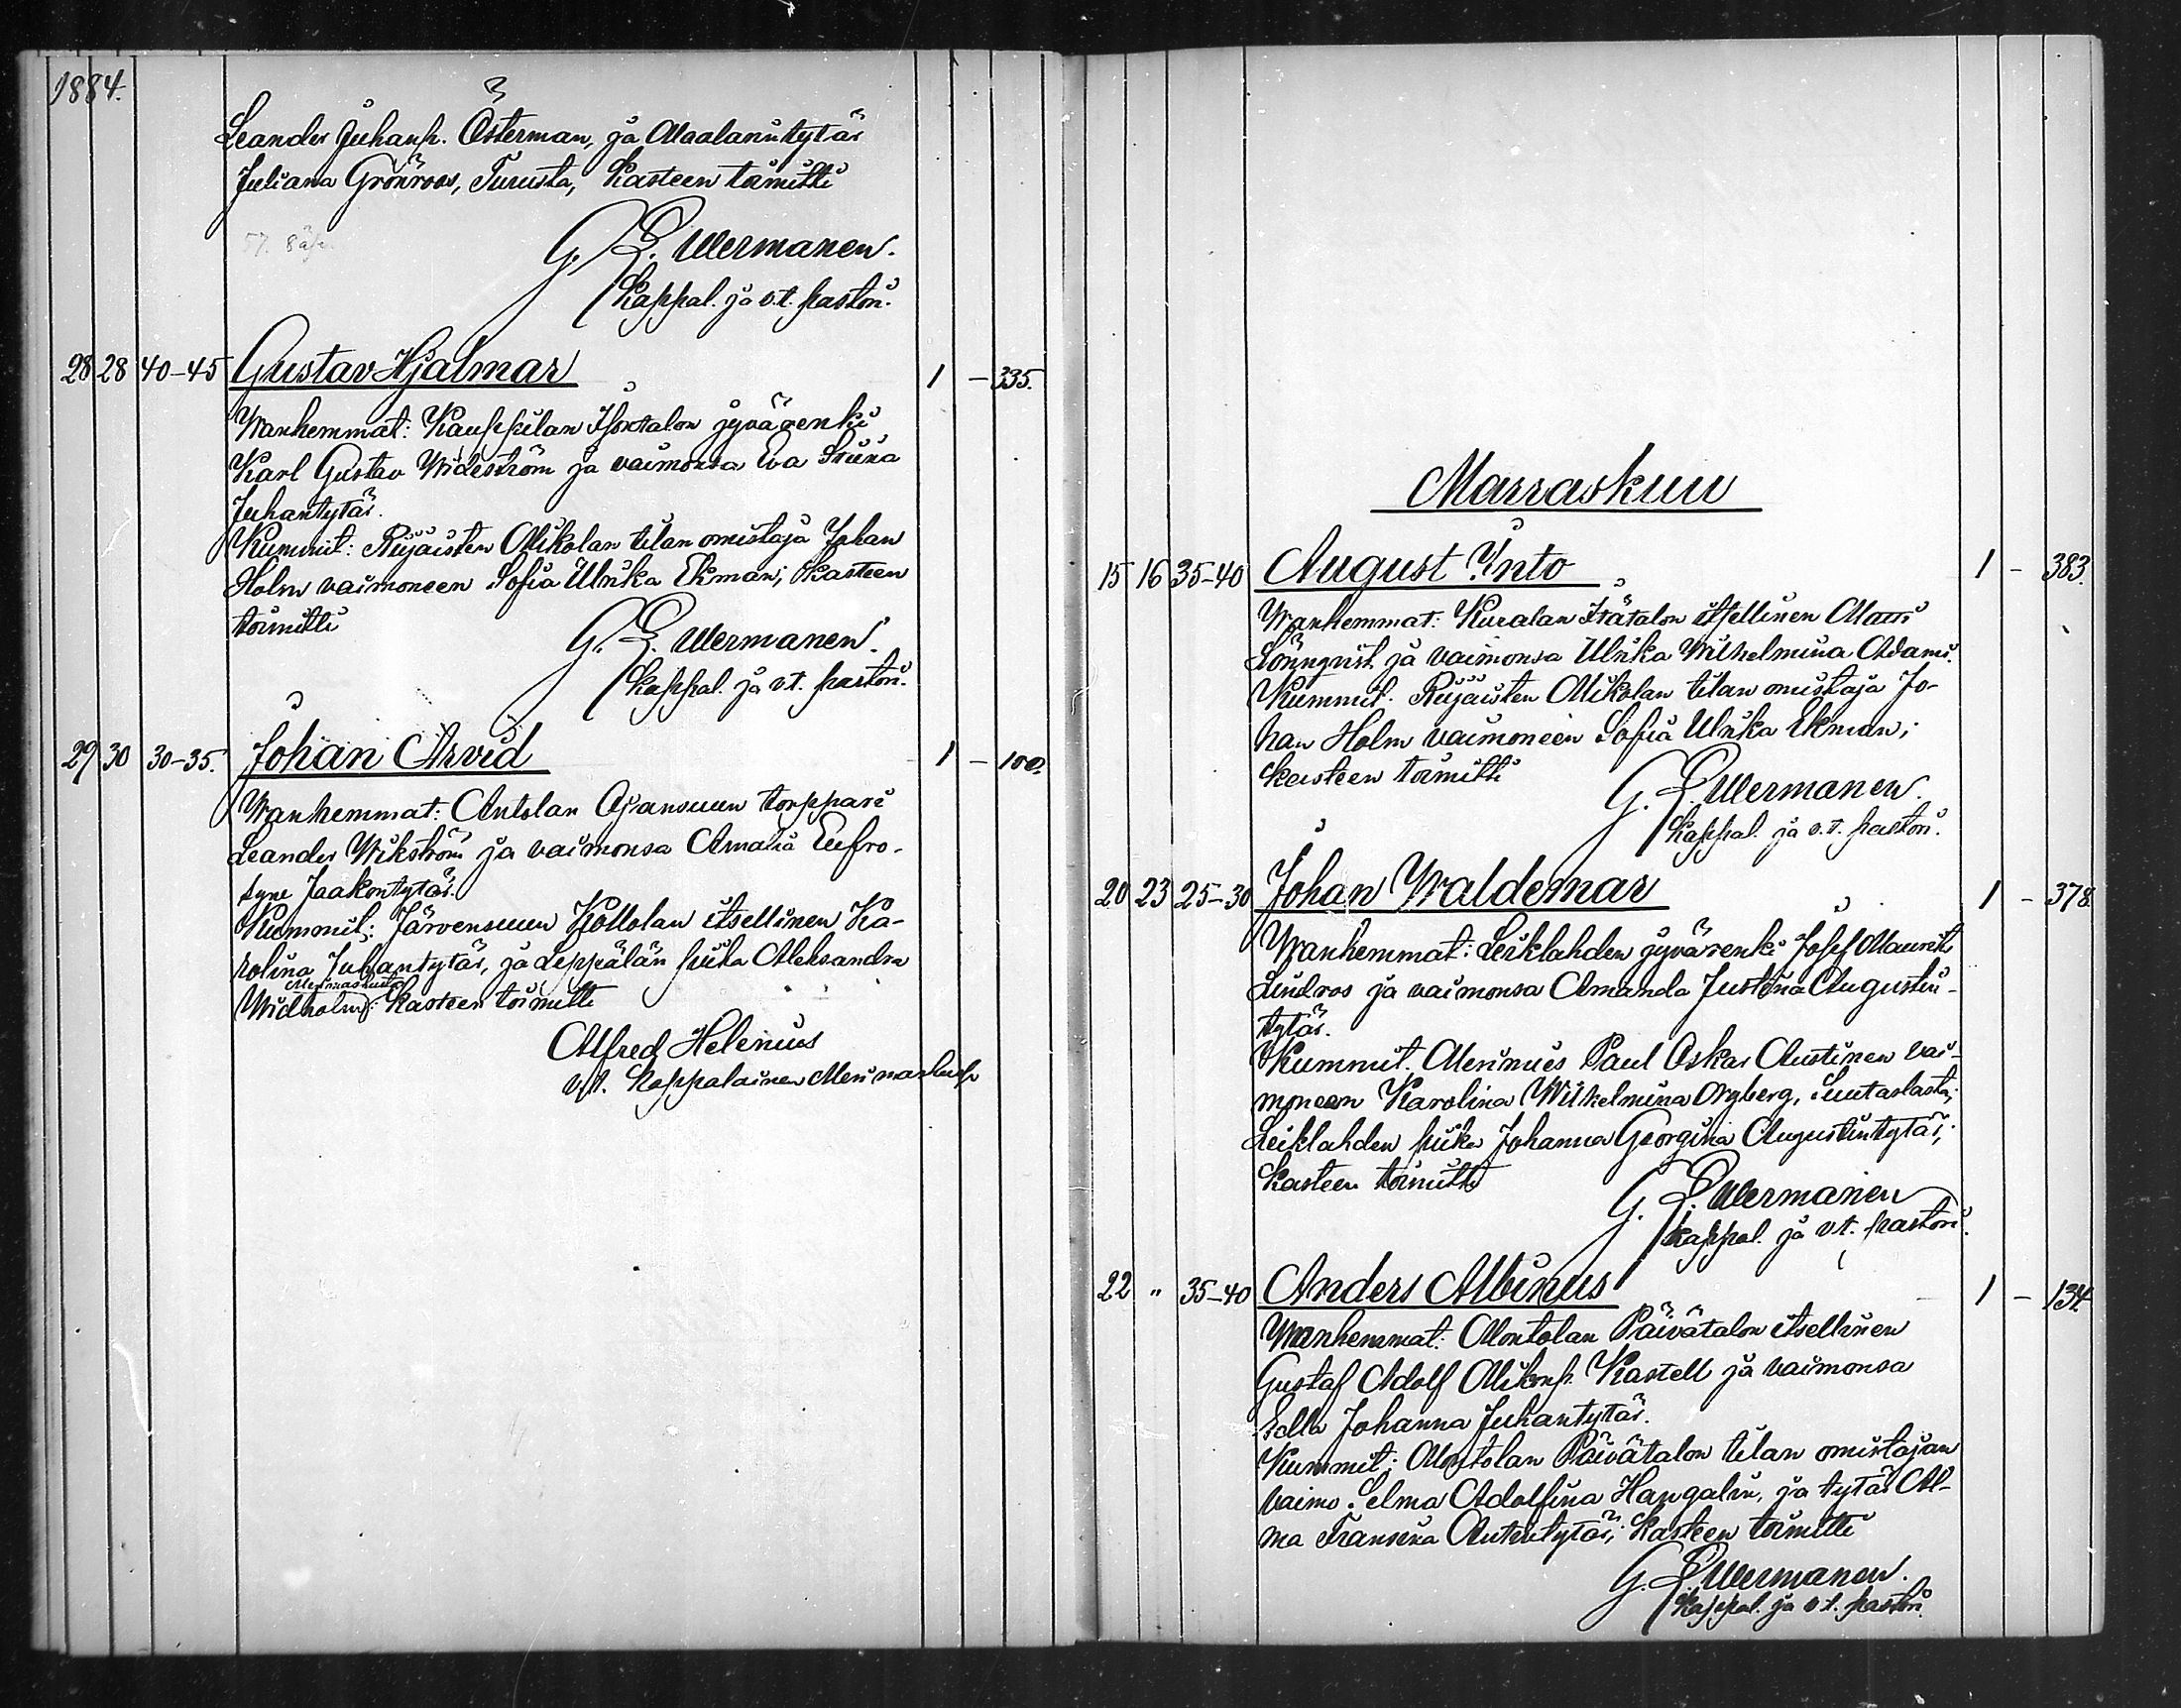 1884.
Leander Juhanp. Österman, ja Maalarintytär
Juliana Grönroos, Turusta, Kasteen toimitti
G. E. Wermanen.
Kappal. ja v.t. pastori.
28 28 40-45 Gustav Hjalmar 1 - 335.
Wanhemmat: Kauppilan Isontalon jyvärenki
Karl Gustav Wideström ja vaimonsa Eva Stiina
Juhantytär.
Kummit: Riijaisten Mikolan tilan omistaja Johan
Holm vaimoneen Sofia Ulrika Ekman; Kasteen
toimitti
G. E. Wermanen.
Kappal. ja v.t. pastori.
29 30 30-35. Johan Arvid 1 - 100.
Wanhemmat: Antolan Ojansuun torppari
Leander Wikström ja vaimonsa Amalia Eufro-
syne Jaakontytär.
Kummit: Järvensuun Kollolan itsellinen Ka-
rolina Juhantytär, ja Leppälän piika Aleksandra
Merimaskusta
Widholm: Kasteen toimitti
Alfred Helenius
v.t. Kappalainen Merimaskussa
Marraskuu
15 16 35-40 August Into 1 - 383.
Wanhemmat: Kuralan Itätalon itsellinen Matti
Lönnqvist ja vaimonsa Ulrika Wilhelmina Adami.
Kummit. Riijaisten Mikolan tilan omistaja Jo-
han Holm vaimoneen Sofia Ulrika Ekman;
Kasteen toimitti
G. E. Wermanen.
Kappal. ja v.t. pastori.
20 23 25-30 Johan Waldemar 1 - 378.
Wanhemmat: Leiklahden jyvärenki Josef Maurits
Lindros ja vaimonsa Amanda Justina Augustin-
tytär.
Kummit. Merimies Paul Oskar Austinen vai-
moneen Karolina Wilhelmina Nyberg, Luutaslasta;
Leiklahden piika Johanna Georgina Augustintytär;
Kasteen toimitti
G. E. Wermanen
Kappal. ja v.t. pastori.
22 " 35-40 Anders Albinus 1 - 134.
Wanhemmat: Montolan Päivätalon itsellinen
Gustaf Adolf Mikonp. Kastell ja vaimonsa
Johanna Juhantytär.
Kummit: Montolan Päivätalon tilan omistajan
vaimo Selma Adolfina Hangalin, ja tytär Al-
ma Fransina Antintytär; Kasteen toimitti
G. E. Wermanen.
Kappal. ja v.t. pastori.